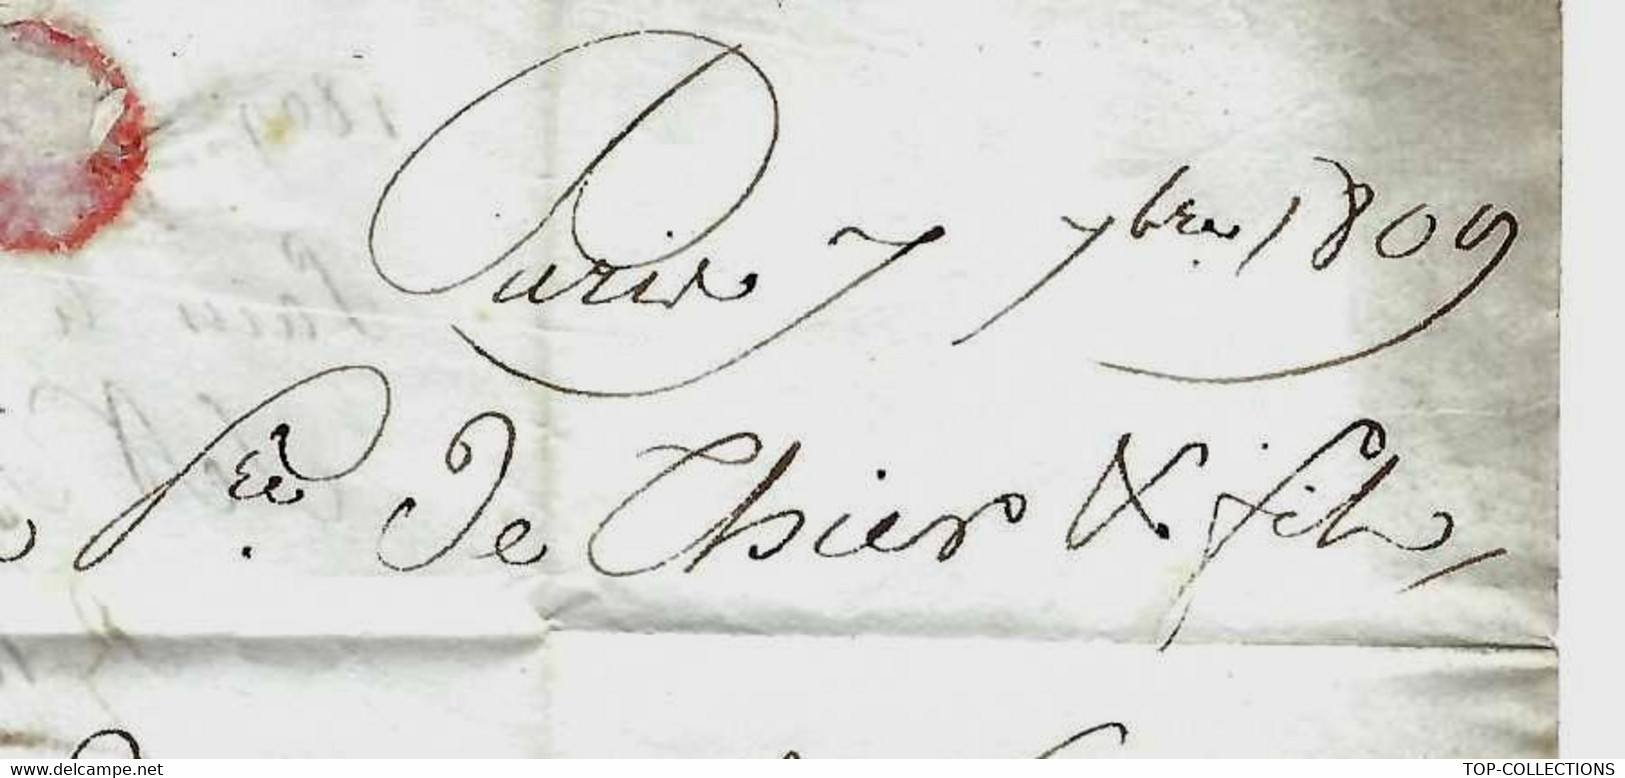 Paris 7 7bre. 1809
Pre. De Thier & fils,
www.delcampe.net
TOP-COLLECTIONS